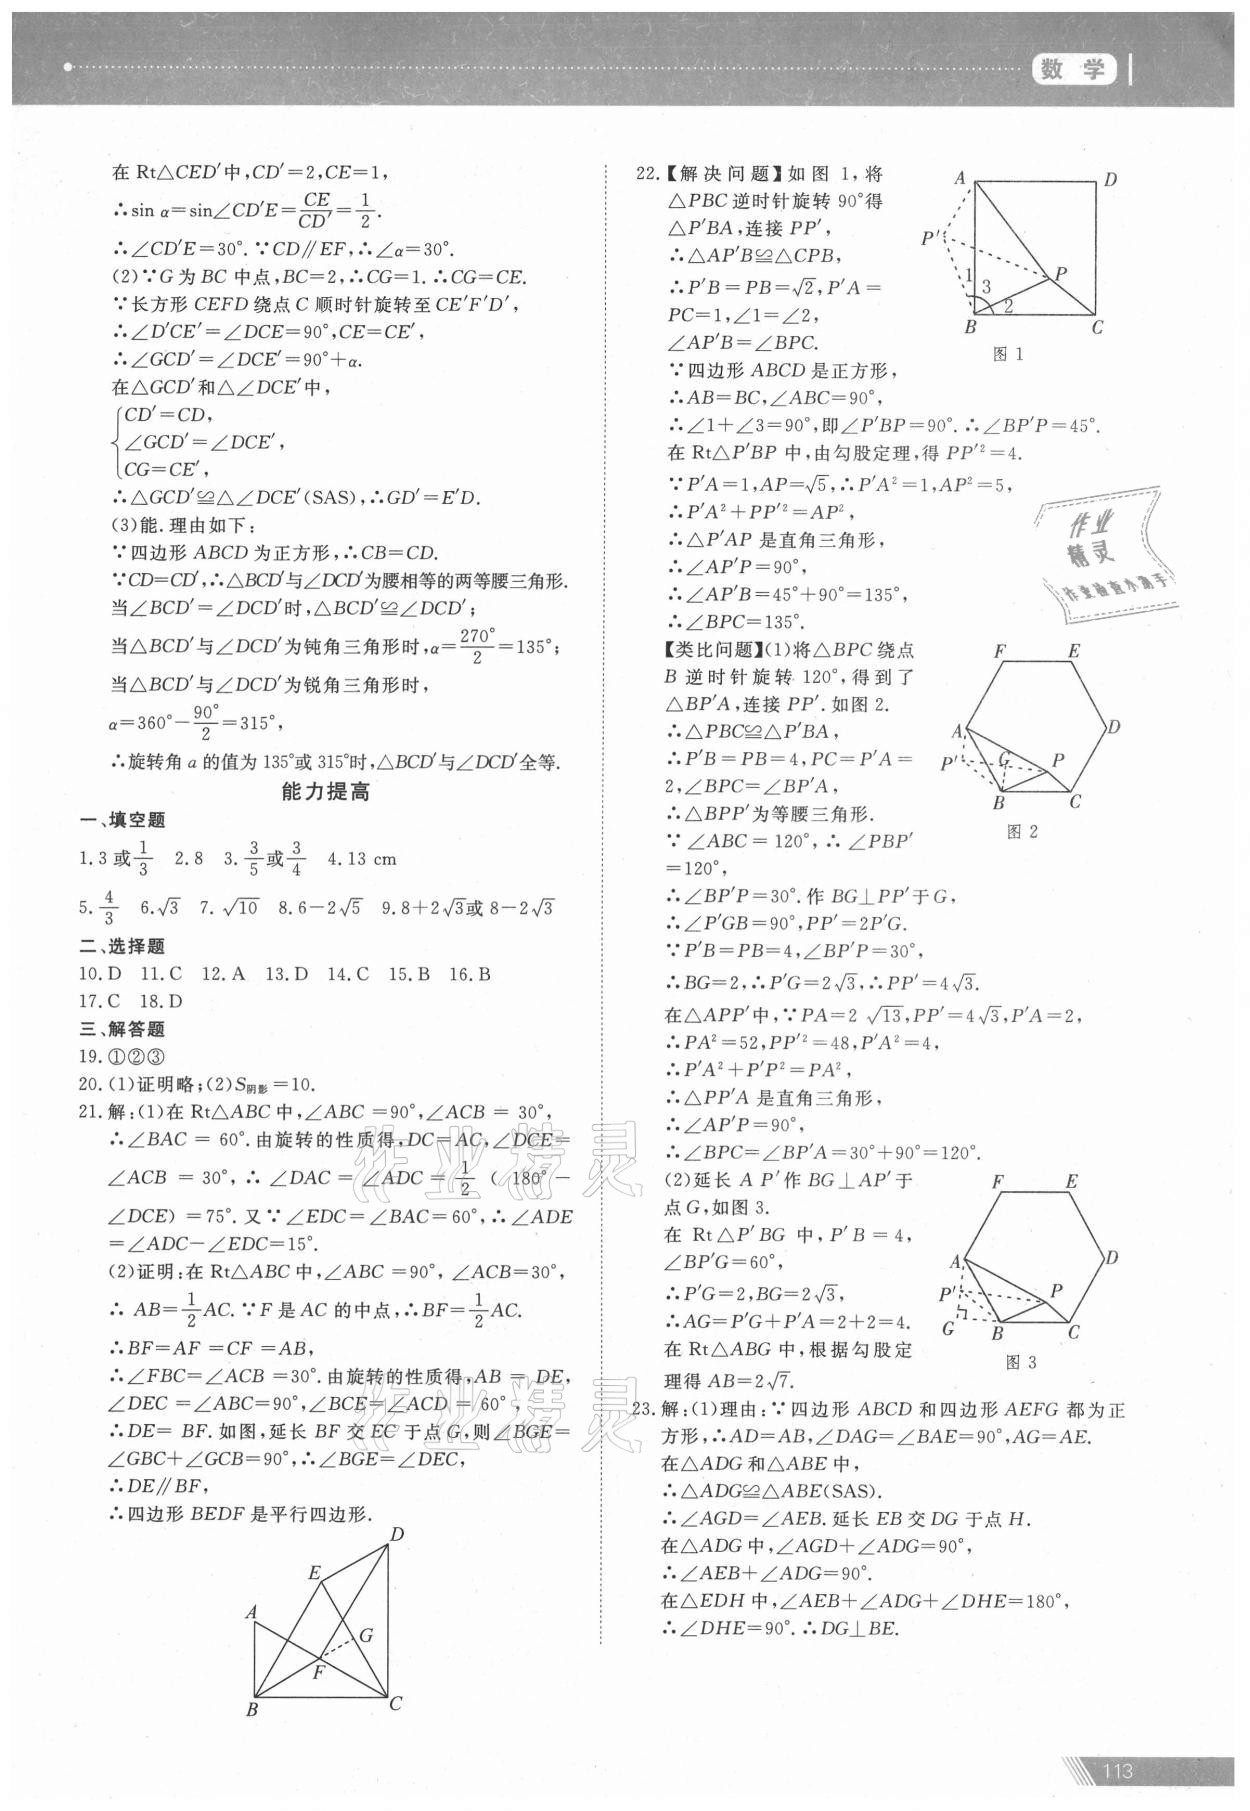 数 学
在 Rt△CED′中,CD′=2,CE=1,
∴sin α=sin∠CD′E=CE/CD′=1/2.
∴∠CD′E=30°.∵CD∥EF,∴∠α=30°.
(2)∵G 为 BC 中点,BC=2,∴CG=1.∴CG=CE.
∵长方形 CEFD 绕点 C 顺时针旋转至 CE′F′D′,
∴∠D′CE′=∠DCE=90°,CE=CE′,
∴∠GCD′=∠DCE′=90°+α.
在△GCD′和△∠DCE′中,
CD′=CD,
∠GCD′=∠DCE′,
CG=CE′,
∴△GCD′≌△∠DCE′(SAS),∴GD′=E′D.
(3)能.理由如下:
∵四边形 ABCD 为正方形,∴CB=CD.
∵CD=CD′,∴△BCD′与∠DCD′为腰相等的两等腰三角形.
当∠BCD′=∠DCD′时,△BCD′≌∠DCD′;
当△BCD′与∠DCD′为钝角三角形时,α=270°/2=135°;
当△BCD′与∠DCD′为锐角三角形时,
α=360°-90°/2=315°,
∴旋转角 a 的值为 135°或 315°时,△BCD′与∠DCD′全等.
能力提高
一、填空题
1.3 或1/3 2.8 3.3/5或3/4 4.13 cm
5.4/3 6.√3 7.√10 8.6-2√5 9.8+2√3或 8-2√3
二、选择题
10.D 11.C 12.A 13.D 14.C 15.B 16.B
17.C 18.D
三、解答题
19.①②③
20.(1)证明略;(2)S阴影=10.
21.解:(1)在 Rt△ABC 中,∠ABC =90°,∠ACB = 30°,
∴∠BAC = 60°.由旋转的性质得,DC=AC,∠DCE=
∠ACB = 30°,∴ ∠DAC = ∠ADC = 1/2 ( 180° -
∠DCE) =75°.又∵∠EDC=∠BAC=60°,∴∠ADE
=∠ADC-∠EDC=15°.
(2)证明:在 Rt△ABC 中,∠ABC =90°, ∠ACB=30°,
∴ AB=1/2AC.∵F 是 AC 的中点,∴BF=1/2AC.
∴BF=AF =CF =AB,
∴∠FBC=∠ACB =30°.由旋转的性质得,AB = DE,
∠DEC =∠ABC=90°,∠BCE=∠ACD = 60°,
∴DE= BF.如图,延长 BF 交 EC 于点 G,则∠BGE=
∠GBC+∠GCB=90°,∴∠BGE=∠DEC,
∴DE∥BF,
∴四边形 BEDF 是平行四边形.
D
E
A
G
F
B
C
22.【解决问题】如图 1,将
△PBC 逆时针旋转 90°得
△P′BA,连接 PP′,
∴△AP′B≌△CPB,
∴P′B=PB=√2,P′A=
PC=1,∠1=∠2,
∠AP′B=∠BPC.
A
D
P′
P
1
3
2
B
C
图 1
∵四边形 ABCD 是正方形,
∴AB=BC,∠ABC=90°,
∴∠1+∠3=90°,即∠P′BP=90°.∴∠BP′P=45°.
在 Rt△P′BP 中,由勾股定理,得 PP′²=4.
∵P′A=1,AP=√5,∴P′A²=1,AP²=5,
∴P′A²+PP′²=AP²,
∴△P′AP 是直角三角形,
∴∠AP′P=90°,
∴∠AP′B=45°+90°=135°,
∴∠BPC=135°.
作业
精灵
作业检查小助手
【类比问题】(1)将△BPC 绕点
B 逆时针旋转 120°,得到了
△BP′A,连接 PP′.如图 2.
∴△PBC≌△P′BA,
∴P′B=PB=4,PC=P′A=
2,∠BPC=∠BP′A,
∴△BPP′为等腰三角形.
∵ ∠ABC = 120°,∴ ∠PBP′
=120°,
F
E
A
D
P′
G
P
B
C
图 2
∴∠BP′P=30°.作 BG⊥PP′于 G,
∴∠P′GB=90°,PP′=2P′G.
∵P′B=PB=4,∠BP′P=30°,
∴BG=2,∴P′G=2√3,∴PP′=4√3.
在△APP′中,∵PA=2√13,PP′=4√3,P′A=2,
∴PA²=52,PP′²=48,P′A²=4,
∴P′A²+P′P²=PA²,
∴△PP′A 是直角三角形,
∴∠AP′P=90°,
∴∠BPC=∠BP′A=30°+90°=120°.
(2)延长 A P′作 BG⊥AP′于
点 G,如图 3.
在 Rt△P′BG 中,P′B=4,
∠BP′G=60°,
∴P′G=2,BG=2√3,
∴AG=P′G+P′A=2+2=4.
在 Rt△ABG 中,根据勾股定
理得 AB=2√7.
F
E
A
D
P′
P
G
B
C
图 3
23.解:(1)理由:∵四边形 ABCD 和四边形 AEFG 都为正
方形,∴AD=AB,∠DAG=∠BAE=90°,AG=AE.
在△ADG 和△ABE 中,
∴△ADG≌△ABE(SAS).
∴∠AGD=∠AEB.延长 EB 交 DG 于点 H.
在△ADG 中,∠AGD+∠ADG=90°,
∴∠AEB+∠ADG=90°.
在△EDH 中,∠AEB+∠ADG+∠DHE=180°,
∴∠DHE=90°.∴DG⊥BE.
作业精灵
作业精灵
113